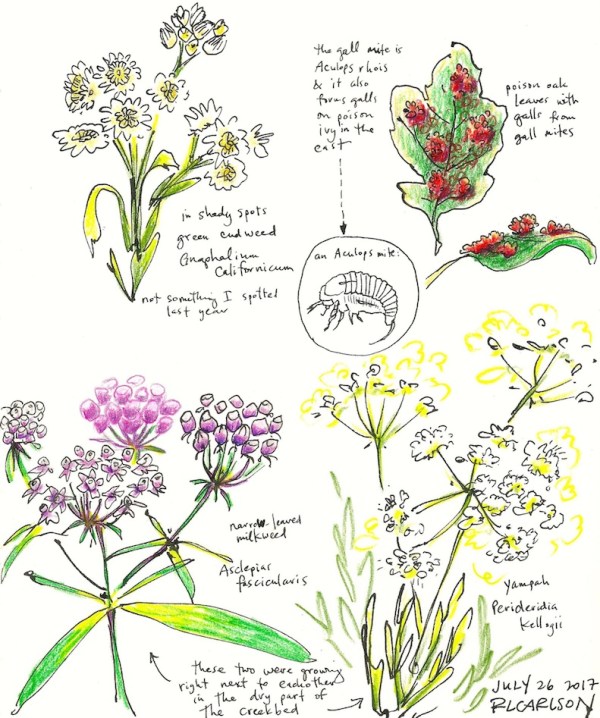 the gall mite is
Aculops rhois
& it also
forms galls
on poison
ivy in the
east
poison oak
leaves with
galls from
gall mites
in shady spots
green cudweed
Gnaphalium
Californicum
not something I spotted
last year
an Aculops mite:
narrow leaved
milkweed
Asclepias
fascicularis
Yampah
Perideridia
Kellogii
these two were growing
right next to eachother
in the dry part of
the creekbed
JULY 26 2017
RLCARLSON